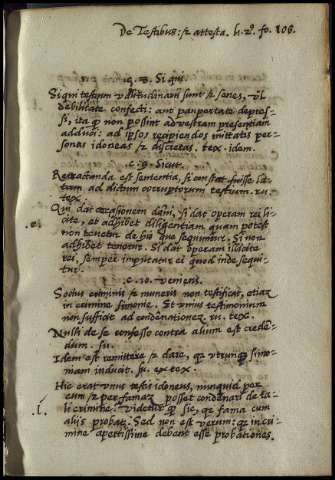 De Testibus: & attesta. li. 2º. fo. 106.
c. 8. Si qui.
Si qui testium valitudinarii sunt & senes, vel
debilitate confecti: aut paupertate depres-
si, ita quod non possint ad vestram presentiam
adduci: ad ipsos recipiendos mittatis per-
sonas idoneas & discretas. tex. idem.
c. 9. Sicut.
Retractanda est sententia, si constat fuisse la-
tam ad dictum corruptorum testium. su.
tex.
Qui dat occasionem damni, si dat operam rei li-
cite, et adhibet diligentiam quam potest
non tenetur de hio que sequuntur. Si non
adhibet tenetur. Si dat operam illicite
rei, semper imputatur ei quod inde sequi-
tur.
c. 10. veniens.
Socius criminis & muneris non testificat, etiam
in crimine simonie. Et vnus testimonium
non sufficit ad condenationem. su. tex.
Nulli de se confesso contra alium est creden-
dum. su.
Idem est remittere & dare, quia vtrumque simo-
niam inducit. su. ex tex.
Hic erat vnus testis idoneus, nunquid per
eum & per famam posset condenari de ta-
li crimine. Videtur quod sic, quia fama cum
aliis probat. Sed non est verum: quia in cri-
mine apertissime debent esse probationes.